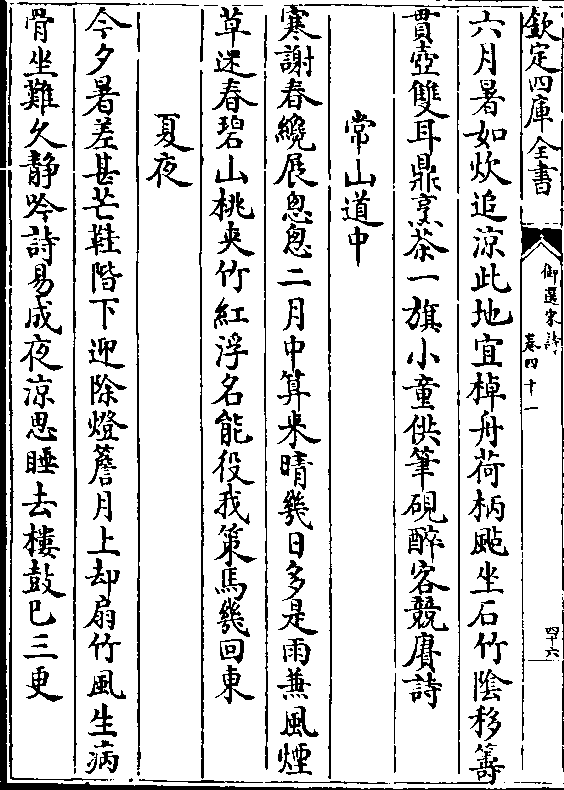 欽定四庫全書
御選宋詩
卷四十一
四十六
六月暑如炊追涼此地宜棹舟荷柄颭坐石竹陰移籌
貫壺雙耳鼎烹茶一旗小童供筆硯醉客競賡詩
常山道中
寒謝春纔展怱怱二月中算来晴幾日多是雨兼風煙
草迷春碧山桃夾竹紅浮名能役我策馬幾回東
夏夜
今夕暑差甚芒鞋階下迎除燈簷月上却扇竹風生病
骨坐難久靜吟詩易成夜涼思睡去樓鼓已三更